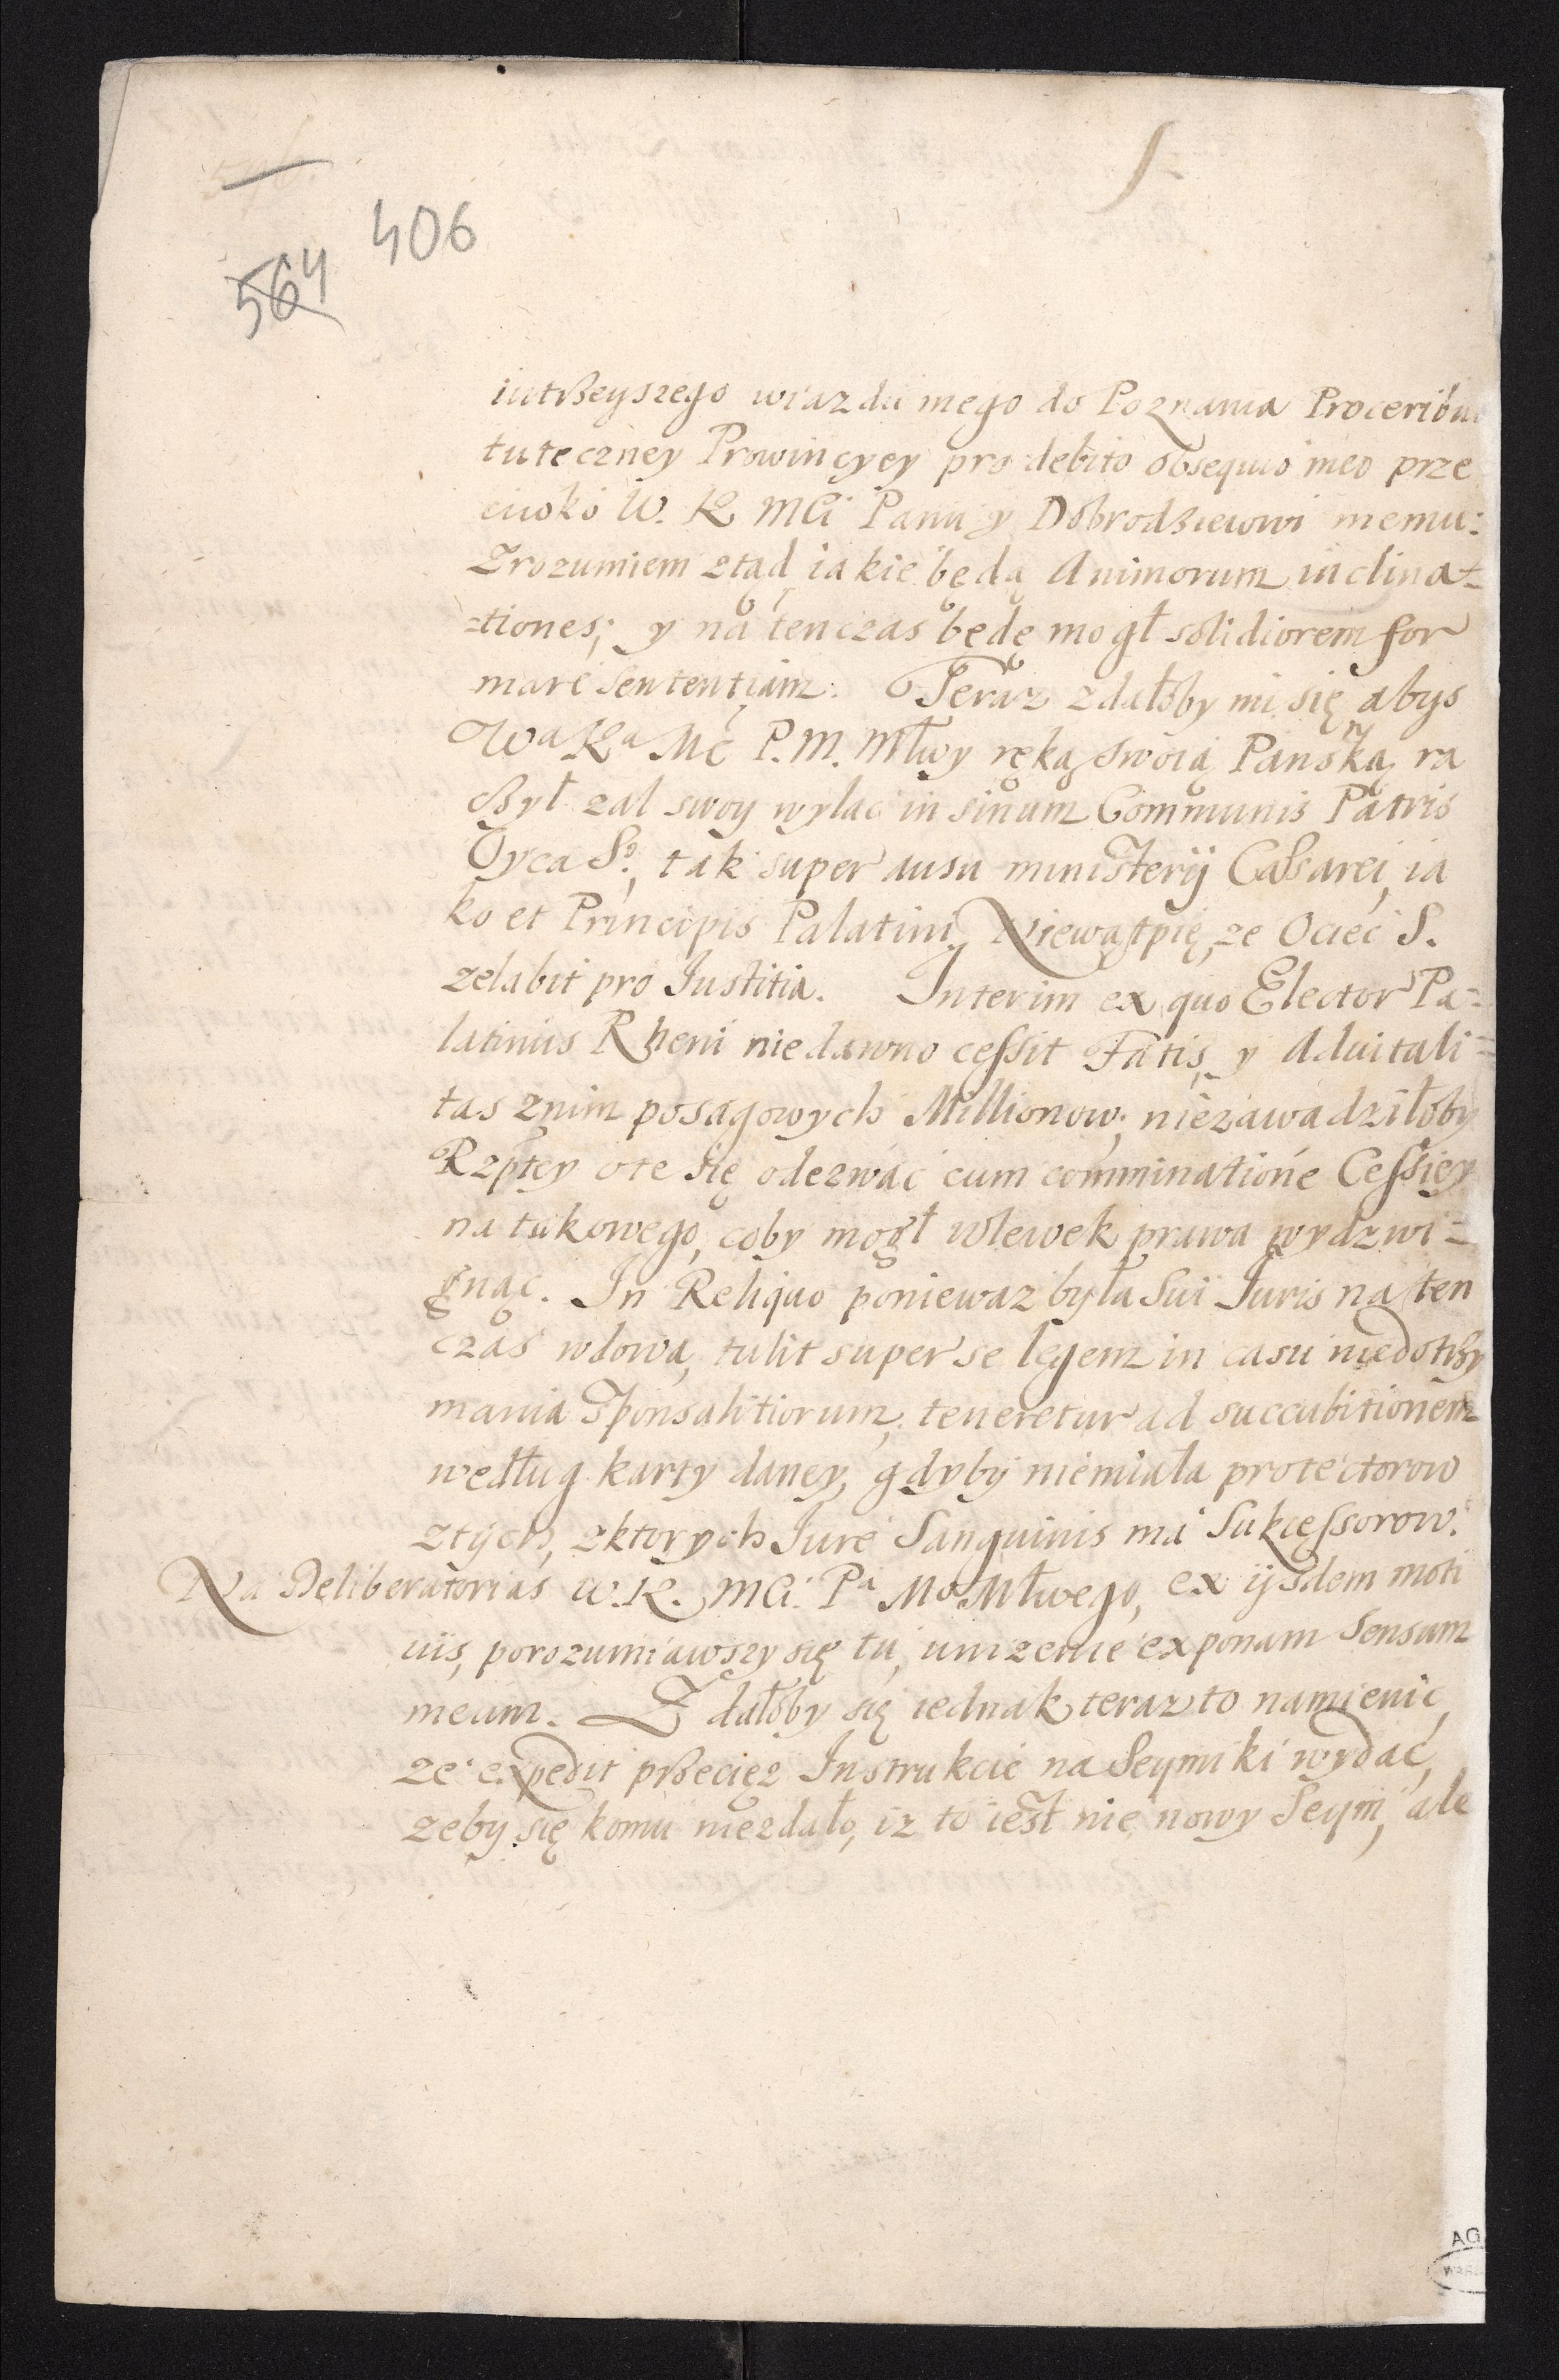 406
564
iutrßeyszego wiazdu mego do Poznania Proceribu
tuteczney Prowincyey pro debito obsequio meo prze
ciwko W. K MCi Panu y Dobrodźieiowi memu:
Zrozumiem ztąd iakie będą Animorum inclina=
=tiones; y na tenczas będę mogł solidiorem for
mare sententiam. Teraz zdałoby mi się abys
Wa Ka Mć P. M. Młwy ręką swoią Panską ra
cżył zal swoy wylać in sinum Communis Patris
Oyca So, tak super ausu ministerij Caesarei, ia
ko et Principis Palatini. Niewątpię, ze Ociec S.
zelabit pro Iustitia. Interim ex quo Elector Pa=
latinus Rheni niedawno cessit Fatis, y Aduitali=
tas znim posagowych Millionow; niezawadziłoby
Rzpltey o te się odezwać cum comminatione Cessiey
na takowego, coby mogł wlewek prawa wydzwi=
gnąc. In Reliquo poniewaz była Sui Iuris na ten
czas wdowa, tulit super se legem in casu niedotrży
mania Sponsalitiorum, teneretur ad succubitionem
według karty daney, gdyby niemiała protectorow
ztych, zktorych Iure Sanguinis ma Sukcessorow.
Na Deliberatorias W. K. MCi. Pa Mo Młwego, ex ijsdem moti
uis, porozumiawszy się tu, unizenie exponam Sensum
meum. Zdałoby się iednak teraz to namienic,
ze expedit przecięz Instrukcie na Seymiki wydać,
zeby się komu niezdało, iz to iest nie nowy Seym, ale
AG